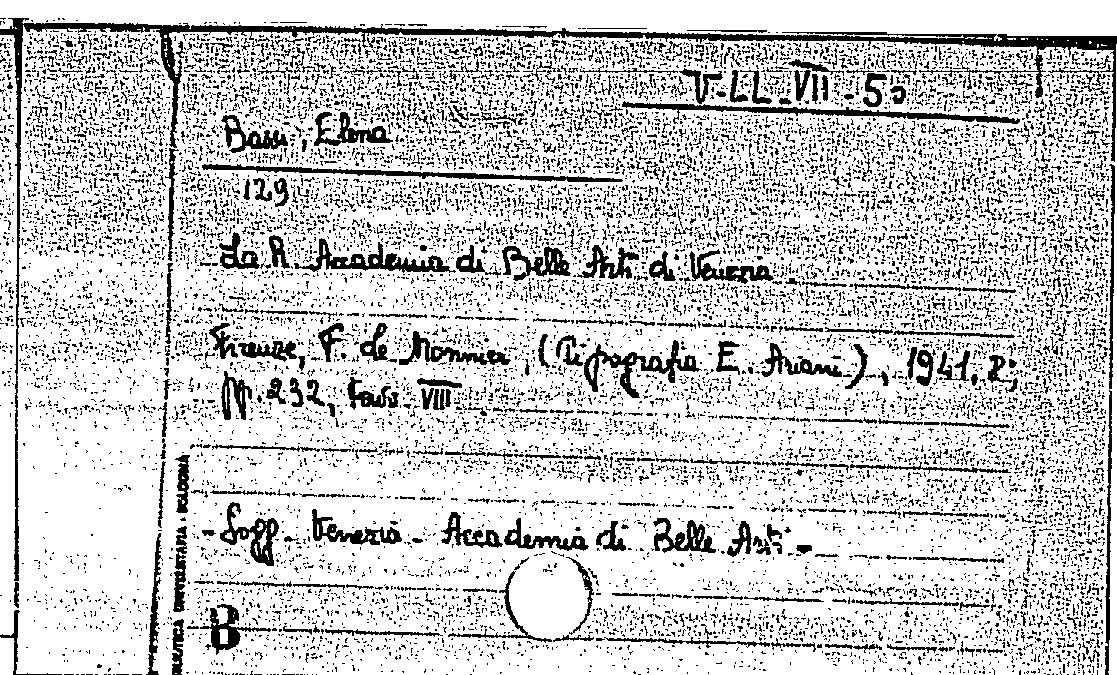 V-LL-VII-53
Bassi, Elena
129
La R. Accademia di Belle Arti di Venezia
Firenze, F. Le Monnier, (Tipografia E. Ariani), 1941, 8°;
pp. 232, tavv. VIII
- Sogg. Venezia - Accademia di Belle Arti -
B